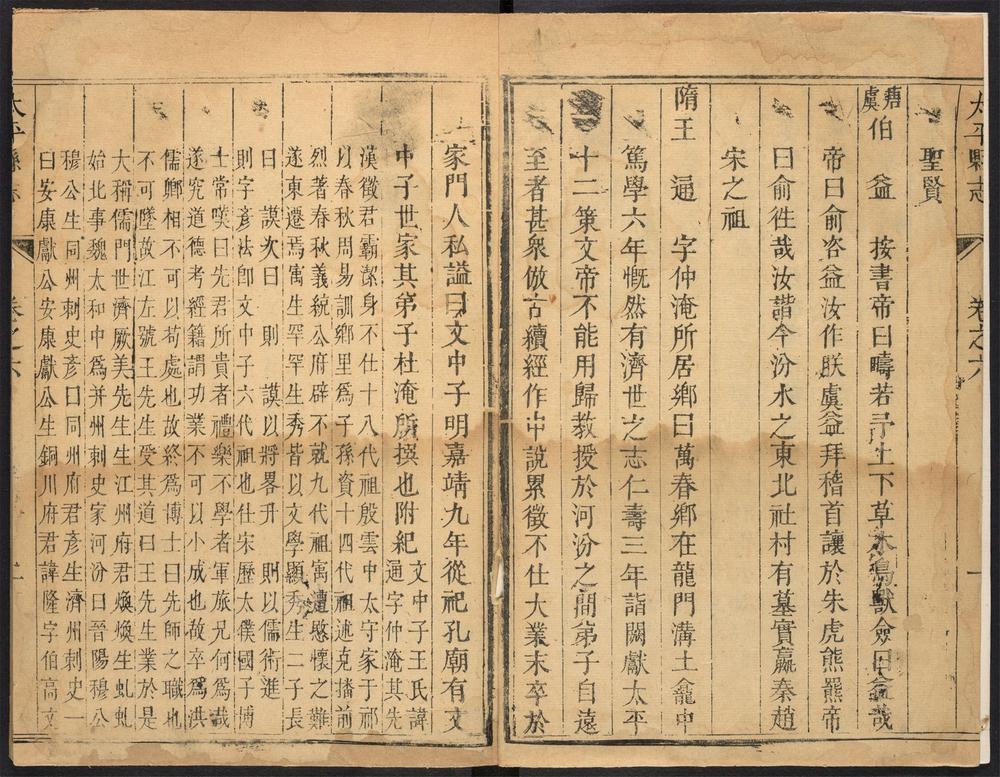 太平縣志
卷之六
一
聖賢
唐虞伯益　按書帝曰疇若予上下草木鳥獸僉曰益哉
帝曰俞咨益汝作朕虞益拜稽首讓於朱虎熊羆帝
曰俞徃哉汝諧今汾水之東北社村有墓實嬴秦趙
宋之祖
隋王　通　字仲淹所居鄉曰萬春鄉在龍門溝土龕中
篤學六年慨然有濟世之志仁壽三年詣闕獻太平
十二策文帝不能用歸教授於河汾之間弟子自遠
至者甚衆倣古續經作中説累徵不仕大業末卒於
家門人私謚曰文中子明嘉靖九年從祀孔廟有文
中子世家其弟子杜淹所撰也附紀文中子王氏諱
通字仲淹其先
漢徵君霸潔身不仕十八代祖殷雲中太守家于祁
以春秋周易訓鄉里爲子孫資十四代祖述克播前
烈著春秋義統公府辟不就九代祖寓遭愍懷之難
遂東遷焉寓生罕罕生秀皆以文學顯秀生二子長
曰　謨次曰　則　謨以將畧升　則以儒術進
則字彥法卽文中子六代祖也仕宋歷太僕國子博
士常嘆曰先君所貴者禮樂不學者軍旅兄何爲哉
遂究道德考經籍謂功業不可以小成也故卒爲洪
儒卿相不可以苟處也故終爲博士曰先師之職也
不可墜故江左號王先生受其道曰王先生業於是
大稱儒門世濟厥美先生生江州府君煥煥生虬虬
始北事魏太和中爲并州刺史家河汾曰晉陽穆公
穆公生同州刺史彥曰同州府君彥生濟州刺史一
曰安康獻公安康獻公生銅川府君諱隆字伯高文
太平縣志
卷之六